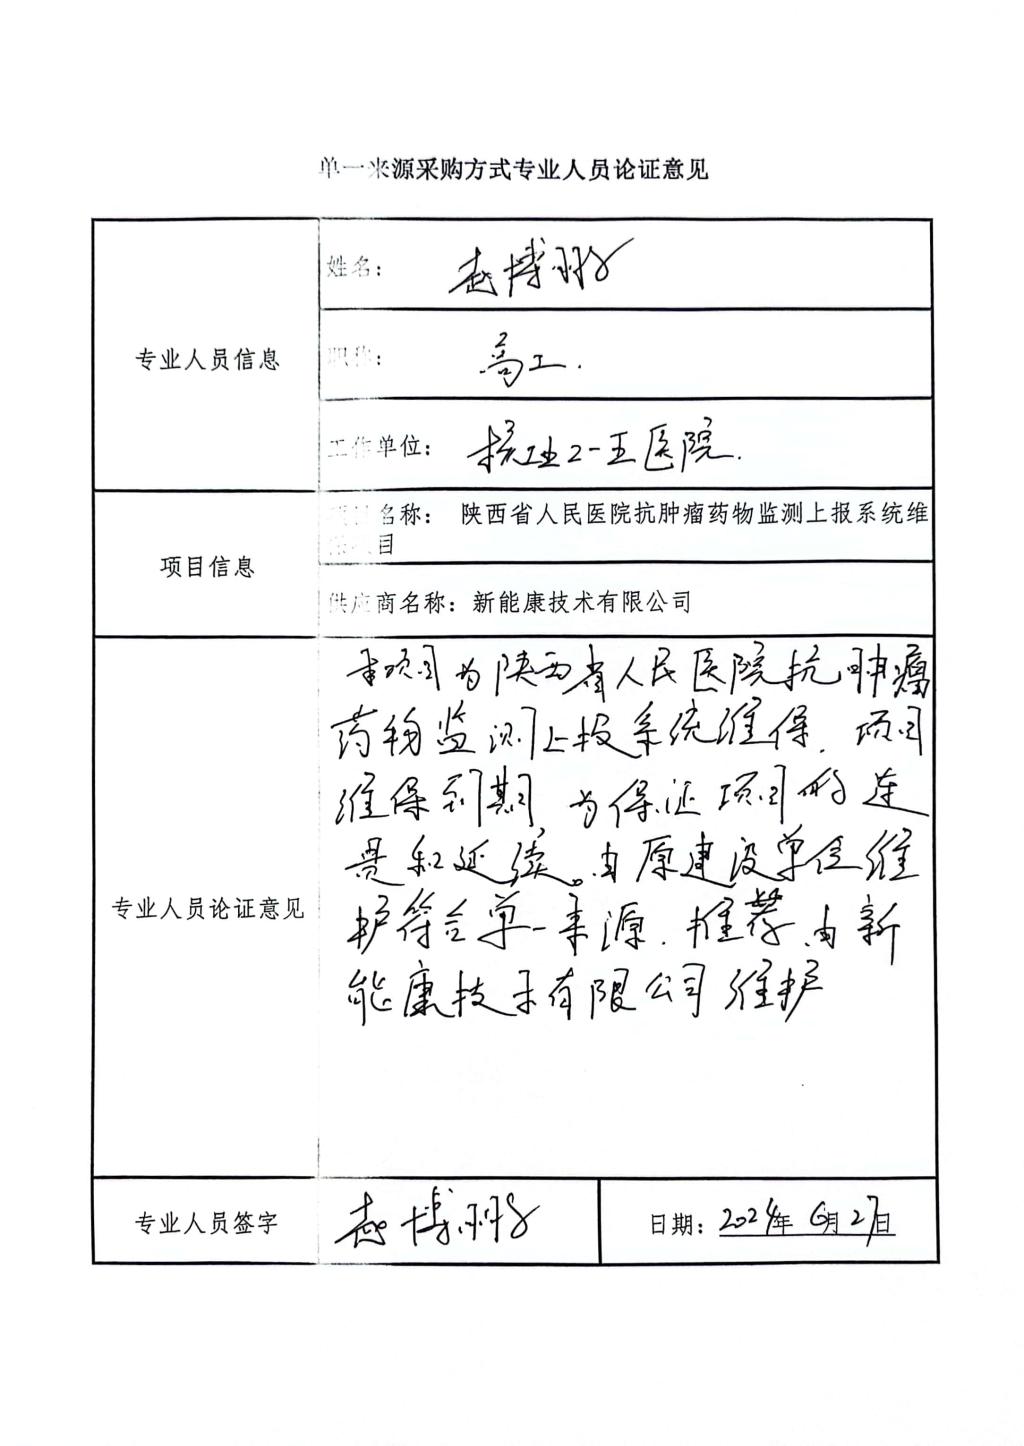 单一来源采购方式专业人员论证意见
专业人员信息
姓名：赵博鹏
职称：高工.
工作单位：核工业二一五医院.
项目信息
项目名称：陕西省人民医院抗肿瘤药物监测上报系统维
保项目
供应商名称：新能康技术有限公司
专业人员论证意见
本项目为陕西省人民医院抗肿瘤
药物监测上报系统维保. 项目
维保到期, 为保证项目的连
贯和延续。由原建设单位维
护符合单一来源. 推荐由新
能康技术有限公司维护
专业人员签字
赵博鹏
日期：2024年6月27日